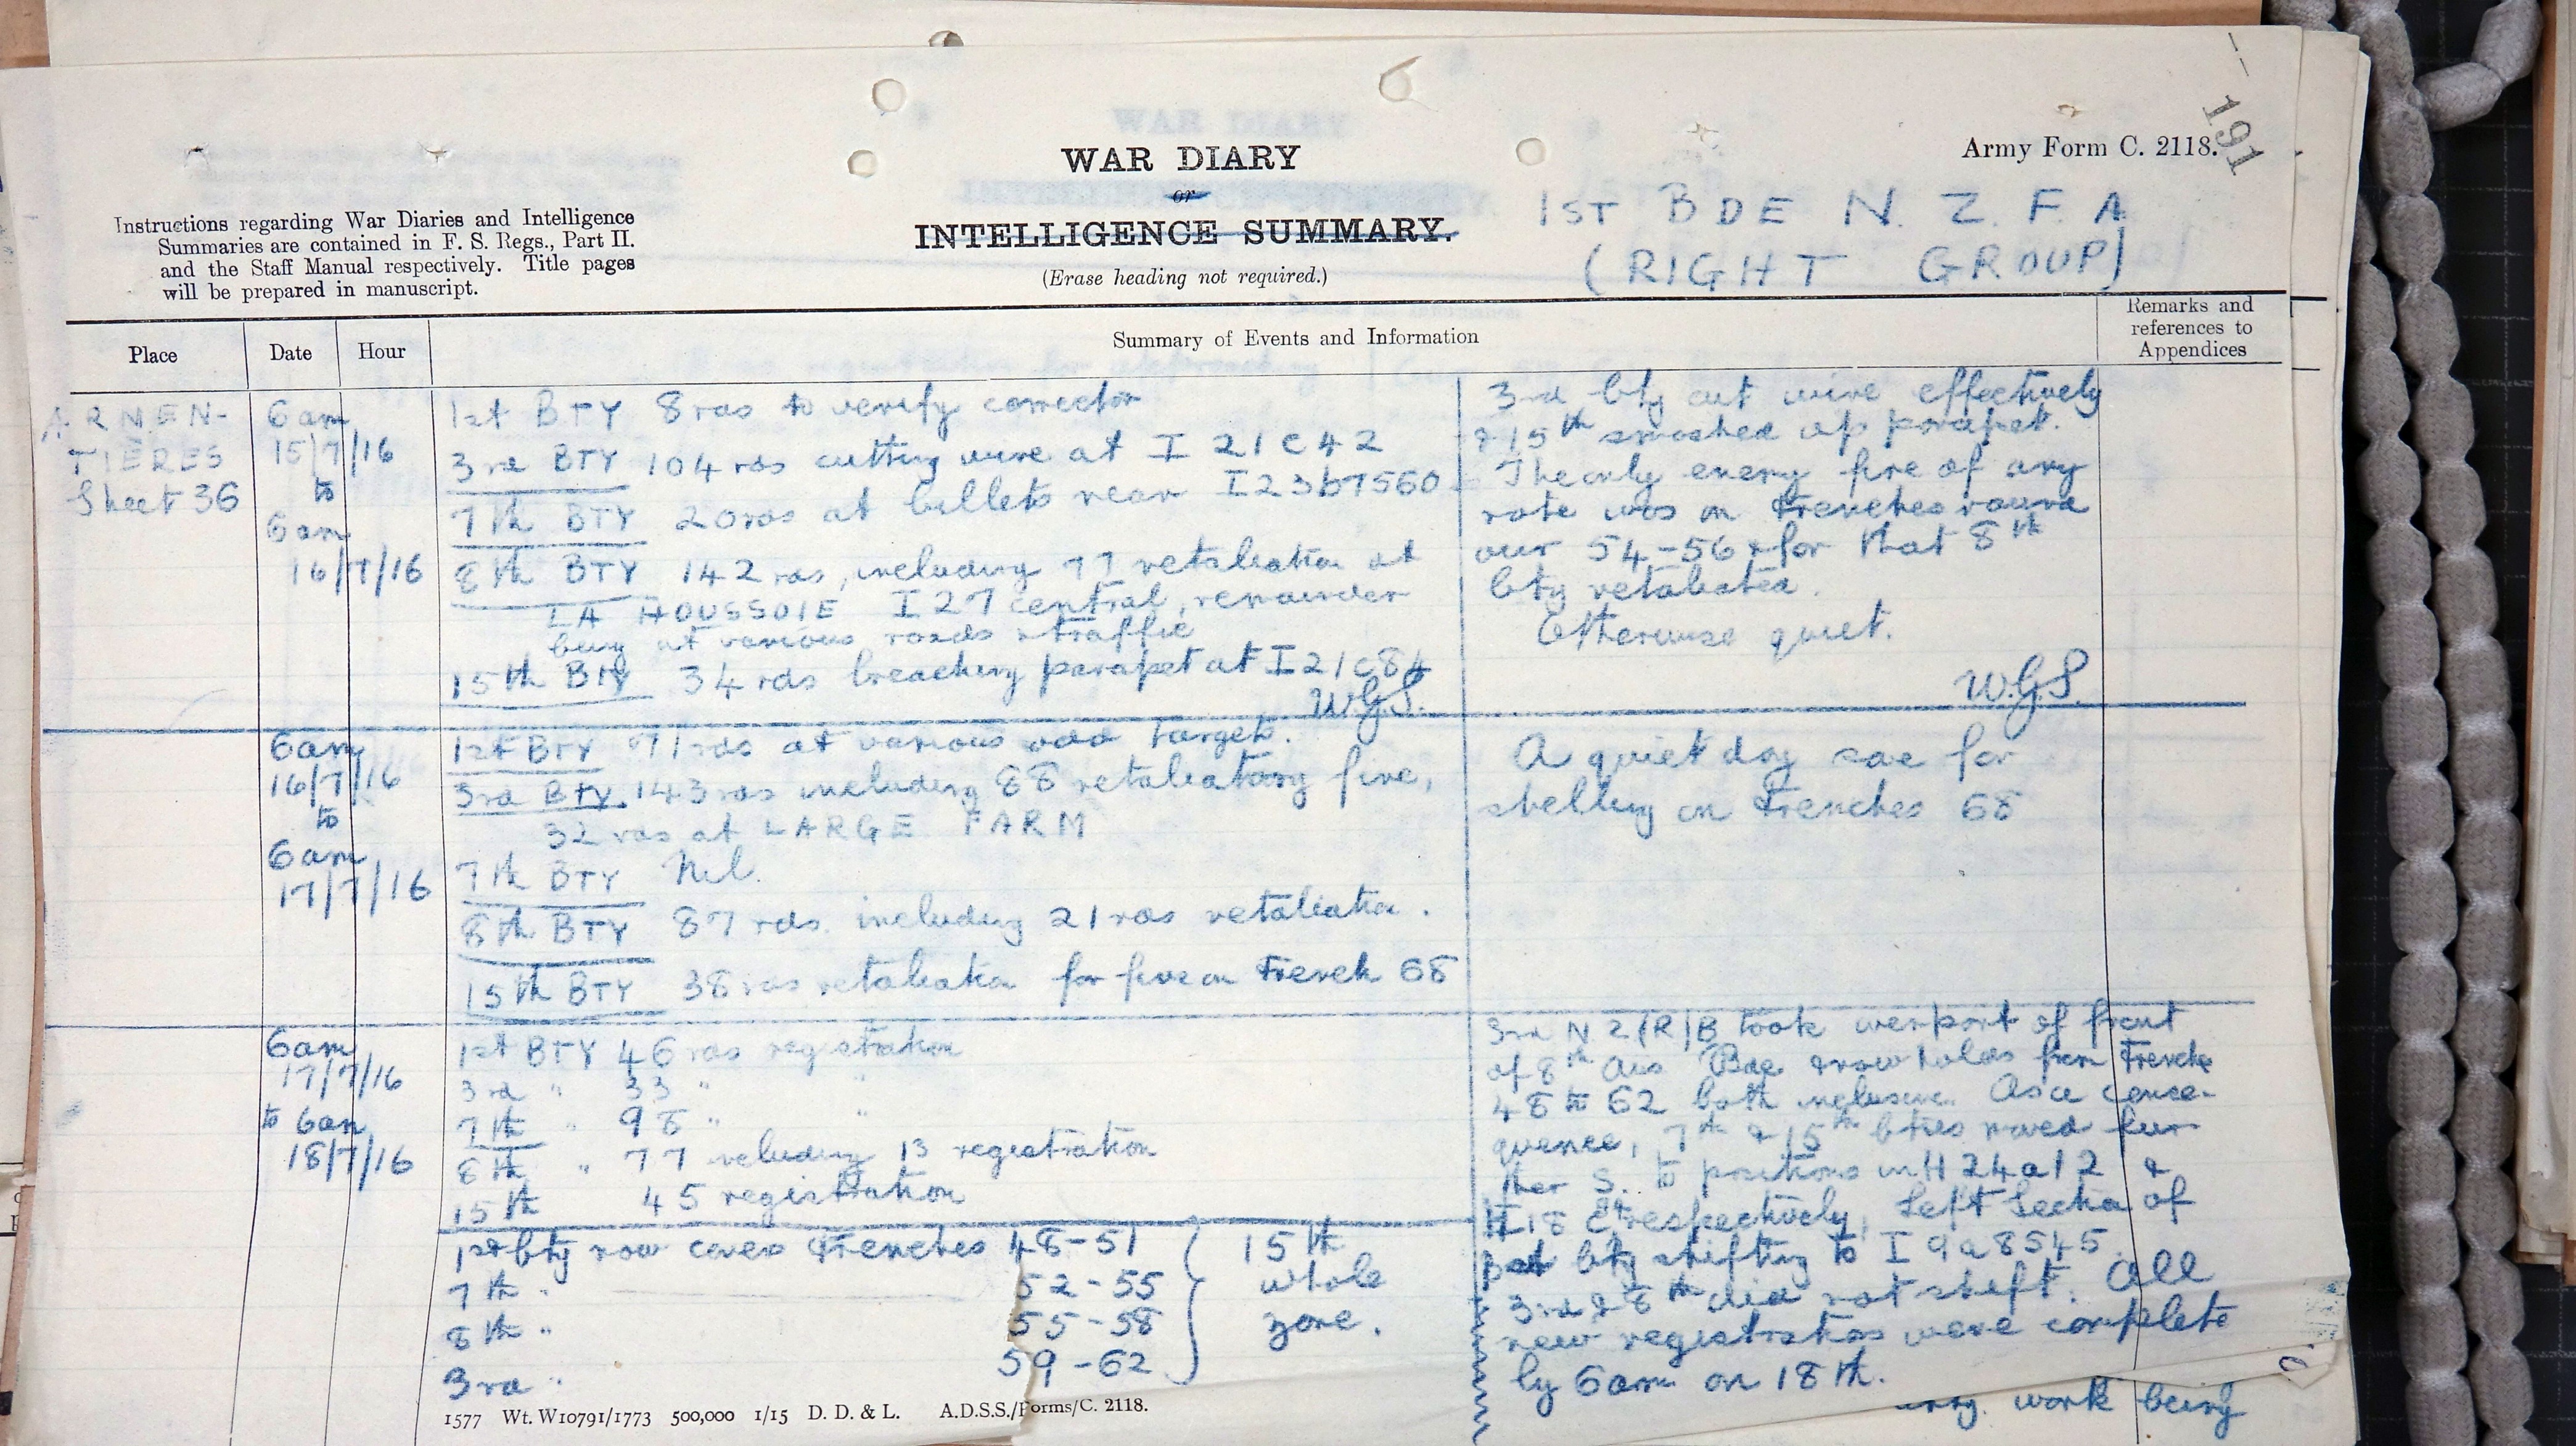 191
Army Form C. 2118.
WAR DIARY
or
INTELLIGENCE SUMMARY.
(Erase heading not required.)
Instructions regarding War Diaries and Intelligence
Summaries are contained in F. S. Regs., Part II.
and the Staff Manual respectively. Title pages
will be prepared in manuscript.
1ST BDE N. Z. F. A
(RIGHT GROUP)
Place
Date
Hour
Summary of Events and Information
Remarks and
references to
Appendices
ARMEN-
TIÈRES
Sheet 36
6am
15/7/16
to
6am
16/7/16
1st BTY 8 rds to verify corrector
3rd BTY 104 rds cutting wire at I 21 c 4 2
7th BTY 20 rds at billets near I 23 b 7560
8th BTY 142 rds, including 77 retaliation at
LA HOUSSOIE I 27 central, remainder
being at various roads & traffic
15th BTY 34 rds breaching parapet at I 21 c 8 4
W.G.S.
3rd bty cut wire effectively
& 15th smashed up parapet.
The only enemy fire of any
note was on trenches round
our 54-56 & for that 8th
bty retaliated.
Otherwise quiet.
W.G.S.
6am
16/7/16
to
6am
17/7/16
1st BTY 71 rds at various odd targets.
3rd BTY. 143 rds including 88 retaliatory fire,
32 rds at LARGE FARM
7th BTY Nil.
8th BTY 87 rds. including 21 rds retaliation.
15th BTY 38 rds retaliation for fire on Trench 68
A quiet day save for
shelling on trenches 68
6am
17/7/16
to 6am
18/7/16
1st BTY 46 rds registration
3rd " 33 " "
7th " 98 " "
8th " 77 including 13 registration
15th 45 registration
1st bty now covers trenches 48-51
7th " 52-55
8th " 55-58
3rd " 59-62
15th
whole
zone.
3rd N Z (R) B took over part of front
of 8th Aus Bde & now holds from Trench
48 to 62 both inclusive. As a conse-
quence, 7th & 15th bties moved fur-
ther S. to positions in H 24 a 1 2 &
H 18 respectively, left section of
bty shifting to I 9 a 8545.
3rd & 8th did not shift. All
new registrations were complete
by 6am on 18th.
work being
1577 Wt. W10791/1773 500,000 1/15 D. D. & L. A.D.S.S./Forms/C. 2118.